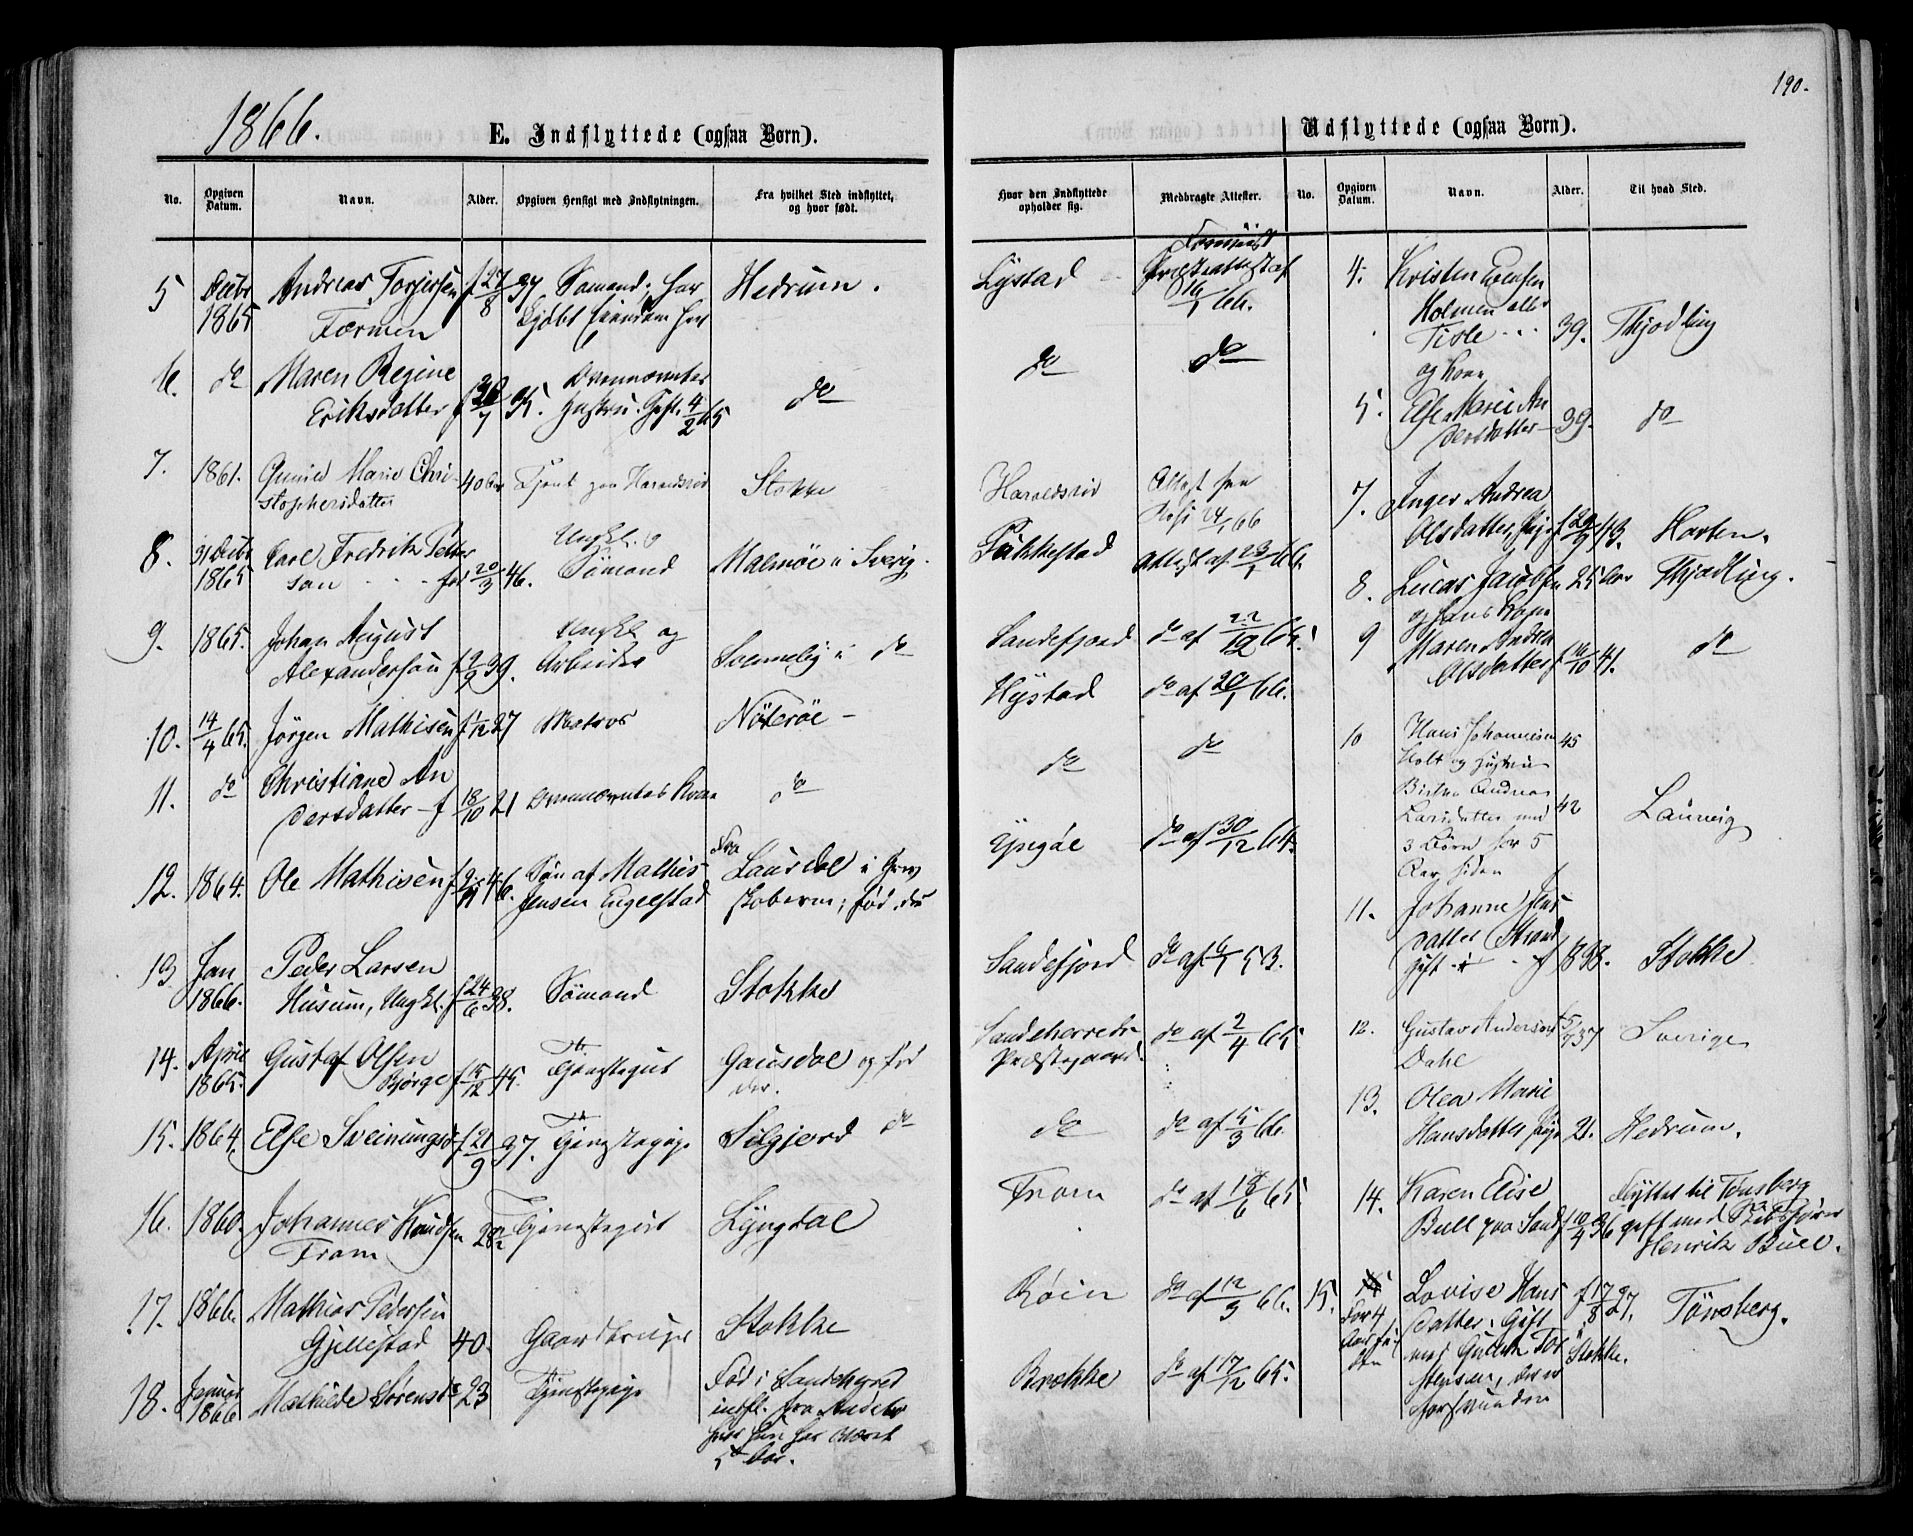 1866.
190.
E. Indflyttede (ogsaa Børn).
Udflyttede (ogsaa Børn).
No.
Opgiven Datum.
Navn.
Alder.
Opgiven Hensigt med Indflytningen.
Fra hvilket Sted indflyttet, og hvor født.
Hvor den Indflyttede opholder sig.
Medbragte Attester.
No.
Opgiven Datum.
Navn.
Alder.
Til hvad Sted.
5 Decbr 1865 Andreas Torjersen Færmen f 27/8 37 Sømand; har kjøbt Eiendom her Hedrum.
6. do Maren Regine Eriksdatter f 7 35. Ovennævntes Hustru. Gift. 4/2 65 do
7. 1861. Gunild Marie Christophersdatter 40 Tjent paa Haraldsrød Stokke
8. 31 Decbr 1865 Carl Fredrik Petterson 20/3 46. Ungkl. og Sømand Malmöe i Sverig.
9. 1865. Johan August Alexanderson 39. Ungkl og Arbeider i do
10. 14/4 65. Jörgen Mathisen f 1/12 27 Matros Nöteröe –
11. do Christiane Andersdatter – f 18/10 21 Ovennævntes Kone do
12. 1864. Ole Mathisen f 46. Søn af Mathis Jensen Engelstad Fra Laurdal i Grevskaberne; født der
13. Jan 1866. Peder Larsen Husum, Ungkl. f 24/6 38. Sømand Stokke
14. April 1865. Gustaf Olsen Bjørge f 15/12 45. Tjenestegut Gausdal og født der.
15. 1864. Else Sveinungsd f 21/9 37. Tjenestepige Silgjord do
16. 1860. Johannes Knudsen Fram 28 1/2 Tjenestegut Lyngdal
17. 1866. Mathias Pedersen Gjellestad 40. Gaardbruger Stokke
18. Januar 1866 Mathilde Sørensd 23 Tjenestepige Fød i Sandeherred indfl. fra Andebu hvor hun har været 5 Aar.
Lystad Præsteattest af 16/1 66.
do do
Haraldsrød Attest fra 24/1 66
Pukkestad Attest af 23/1 66.
Sandefjord do af 22/12 65.
Hystad do af 20/1 66.
do do
do af 30/12 64.
Sandefjord do af 6/1 53.
Sandeherreds Præstegaard. do af 2/4 65
do do af 5/3 66
Fram do af 18/6 65
Röin do af 12/3 66.
Brække do af 17/12 65.
4. Kristen Evensen Holmen eller Tisle 39. Thjodling
og Kone
5. Else Marie Andersdatter – 39. do
7. Inger Andrea Olsdatter, Pige f 29/9 43. Horten.
8. Lucas Jacobsen 25 Aar Thjodling.
og hans Kone
9 Maren Andrea Olsdatter f 16/10 41. do
10 Hans Johannesen Holt og Hustru 45
Andrea Larsdatter med 3 Børn for 5 Aar siden 42 Laurvig
11. Johanne datter Strand gift f 1838. Stokke
12. Gustav Anderson Dahl 5/9 37 Sverige
13. Olea Marie Hansdatter Pige 21. Hedrum.
14. Karen Elise Bull paa Sand f 10/4 36 Flyttet til Tønsberg gift med Skibsfører Henrik Bull.
15. For 4 Aar siden Lovise Hansdatter; Gift med Gullik Torstensen, der er forsvunden f 17/8 27. i Stokke. Tönsberg.